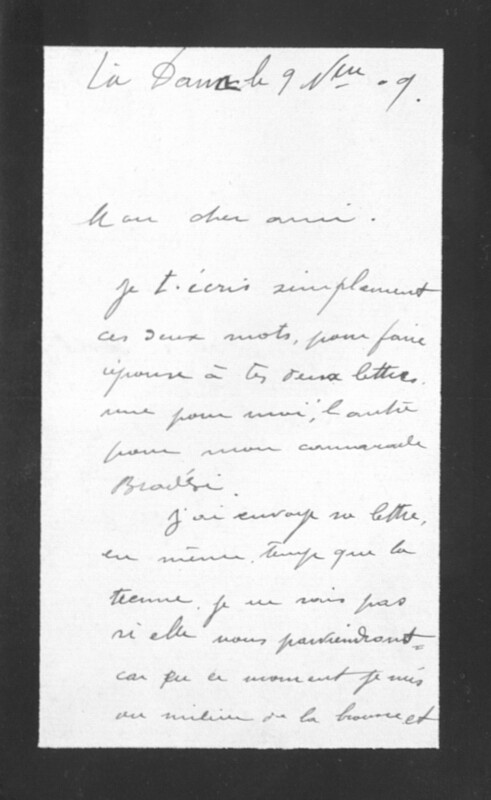 le 9 9.
Mon cher ami.
Je t'écris simplement
ces deux mots, pour faire
réponse à tes deux lettres.
une pour moi, l'autre
pour mon camarade
Bradési.
J'ai envoyé sa lettre,
en même temps que la
tienne. je ne sais pas
si elle vous parviendront-
car en ce moment je suis
au milieu de la brousse et